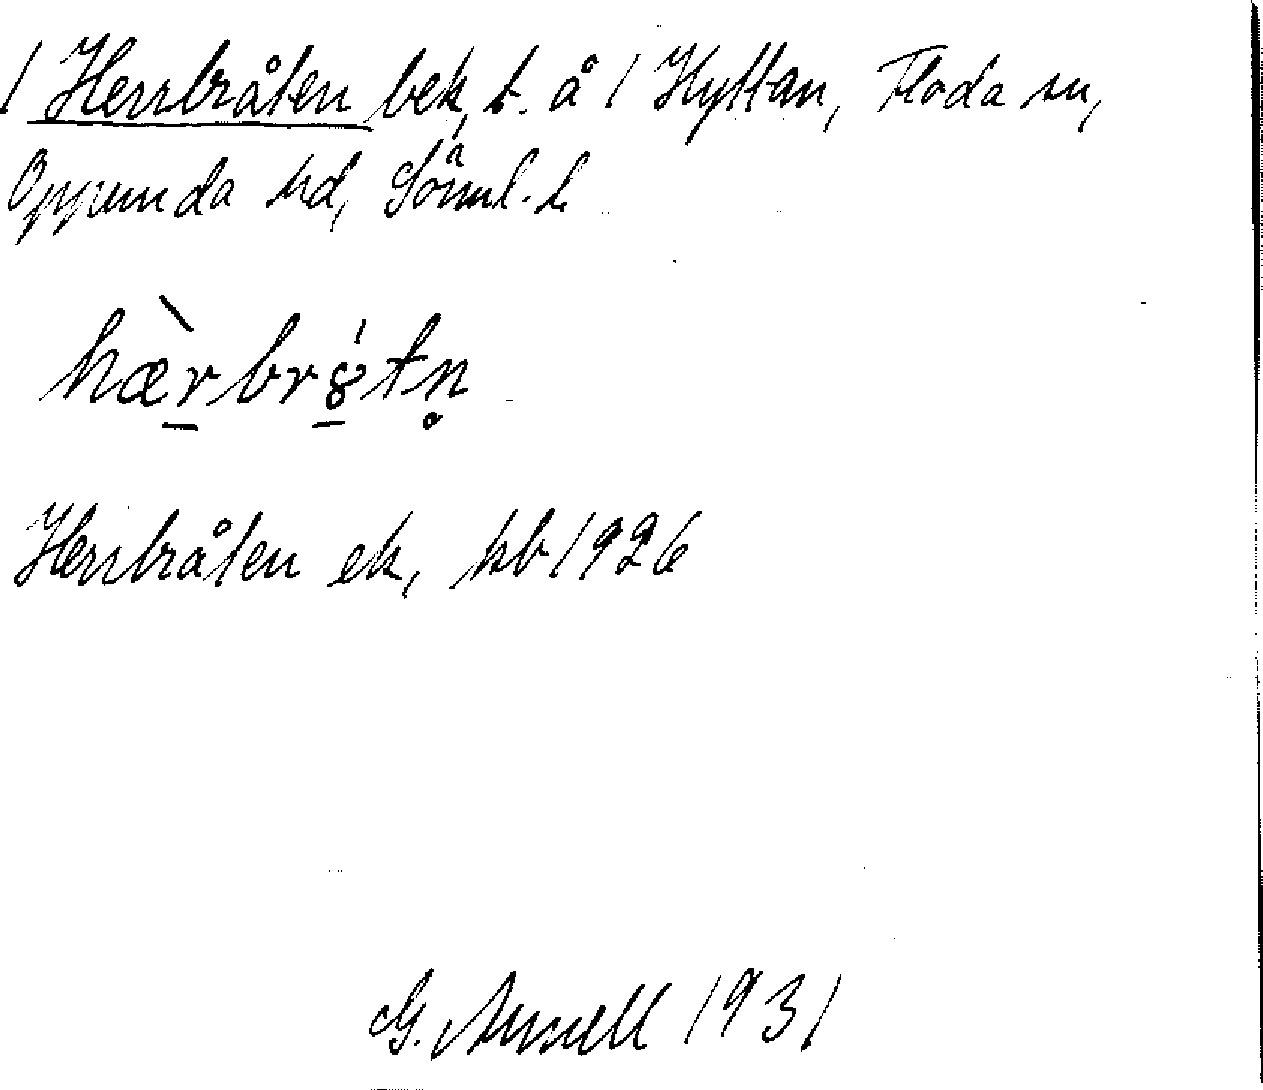 1 Herrbråten bek, t. å 1 Hyttan, Floda sn,
Oppunda hd, Sörml. l.
hæ̀rbrȣ́tn̥
Herrbråten ek, kb 1926
G. Arnell 1931